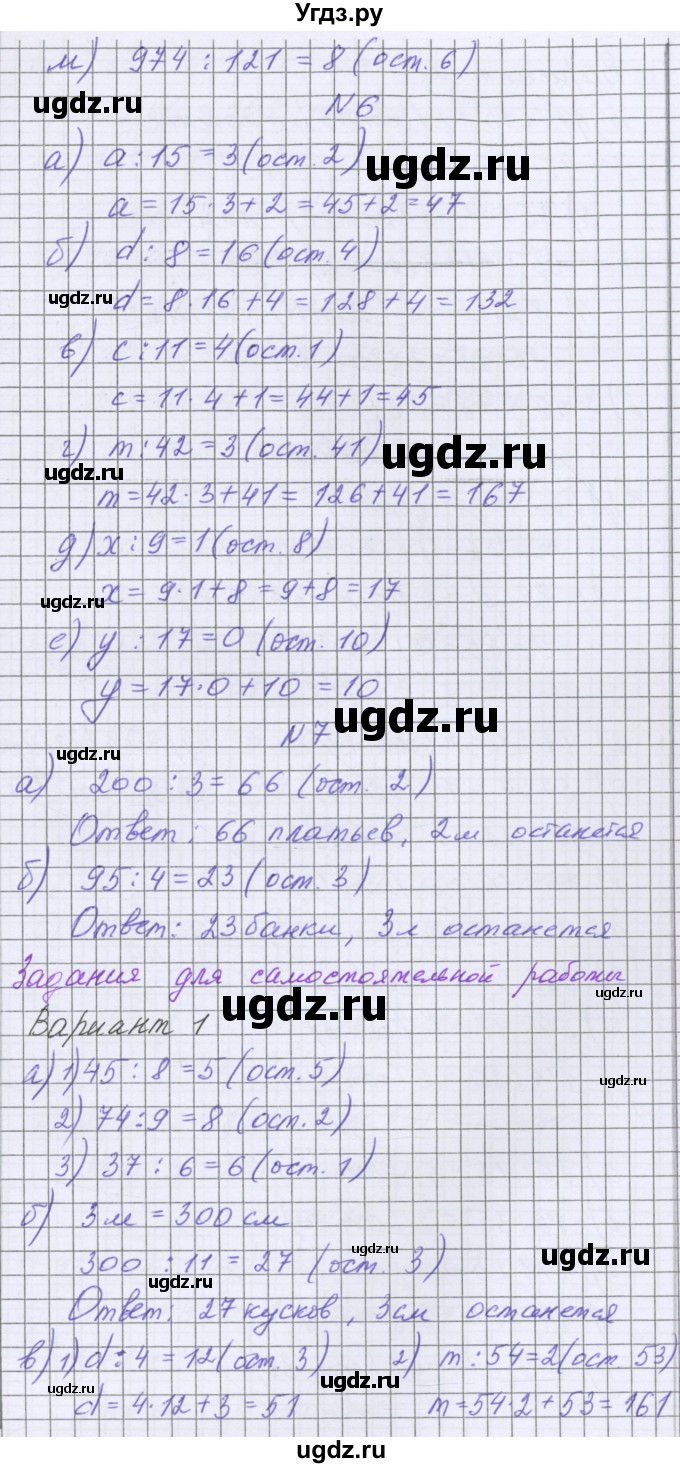 Угдз.ру
м) 974 : 121 = 8 (ост. 6)
ugdz.ru
N6
а) a : 15 = 3 (ост. 2)
ugdz.ru
a = 15 · 3 + 2 = 45 + 2 = 47
б) d : 8 = 16 (ост. 4)
ugdz.ru
d = 8 · 16 + 4 = 128 + 4 = 132
в) c : 11 = 4 (ост. 1)
c = 11 · 4 + 1 = 44 + 1 = 45
г) m : 42 = 3 (ост. 41)
ugdz.ru
ugdz.ru
m = 42 · 3 + 41 = 126 + 41 = 167
д) x : 9 = 1 (ост. 8)
x = 9 · 1 + 8 = 9 + 8 = 17
ugdz.ru
е) y : 17 = 0 (ост. 10)
y = 17 · 0 + 10 = 10
ugdz.ru
N7
ugdz.ru
а) 200 : 3 = 66 (ост. 2)
Ответ : 66 платьев, 2м останется
б) 95 : 4 = 23 (ост. 3)
Ответ: 23 банки, 3л останется
Задания для самостоятельной работы
ugdz.ru
ugdz.ru
Вариант 1
а) 1) 45 : 8 = 5 (ост. 5)
ugdz.ru
2) 74 : 9 = 8 (ост. 2)
3) 37 : 6 = 6 (ост. 1)
б) 3м = 300 см
ugdz.ru
300 : 11 = 27 (ост. 3)
ugdz.ru
ugdz.ru
Ответ: 27 кусков, 3см останется
в) 1) d : 4 = 12 (ост. 3) 2) m : 54 = 2 (ост. 53)
ugdz.ru
d = 4 · 12 + 3 = 51 m = 54 · 2 + 53 = 161
ugdz.ru